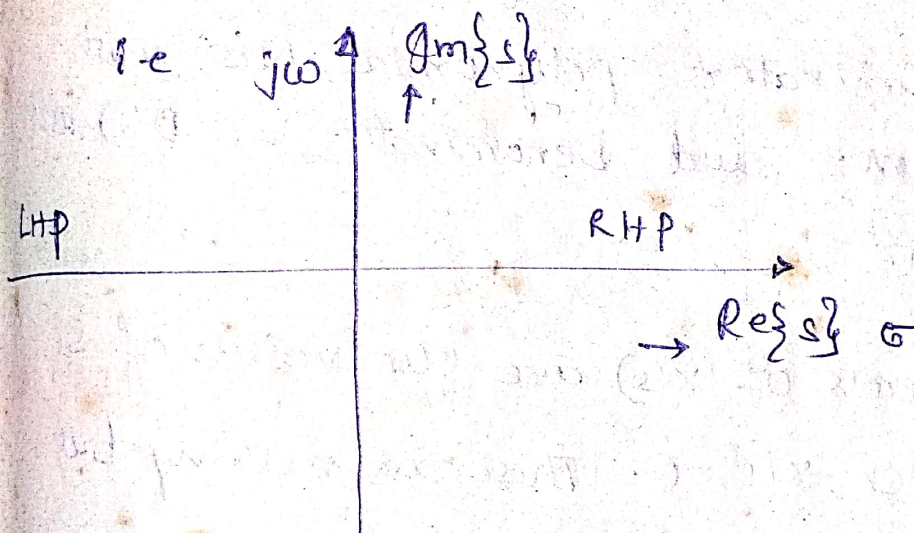 i-e jω Im{s}
LHP
RHP
Re{s} σ